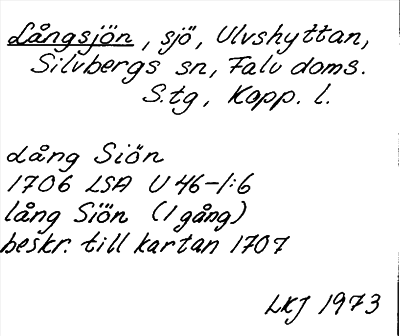 Långsjön, sjö, Ulvshyttan,
Silvbergs sn, Falu doms.
S.tg, Kopp. l.
Lång Siön
1706 LSA U 46-1:6
lång Siön (1 gång)
beskr. till kartan 1707
LKJ 1973